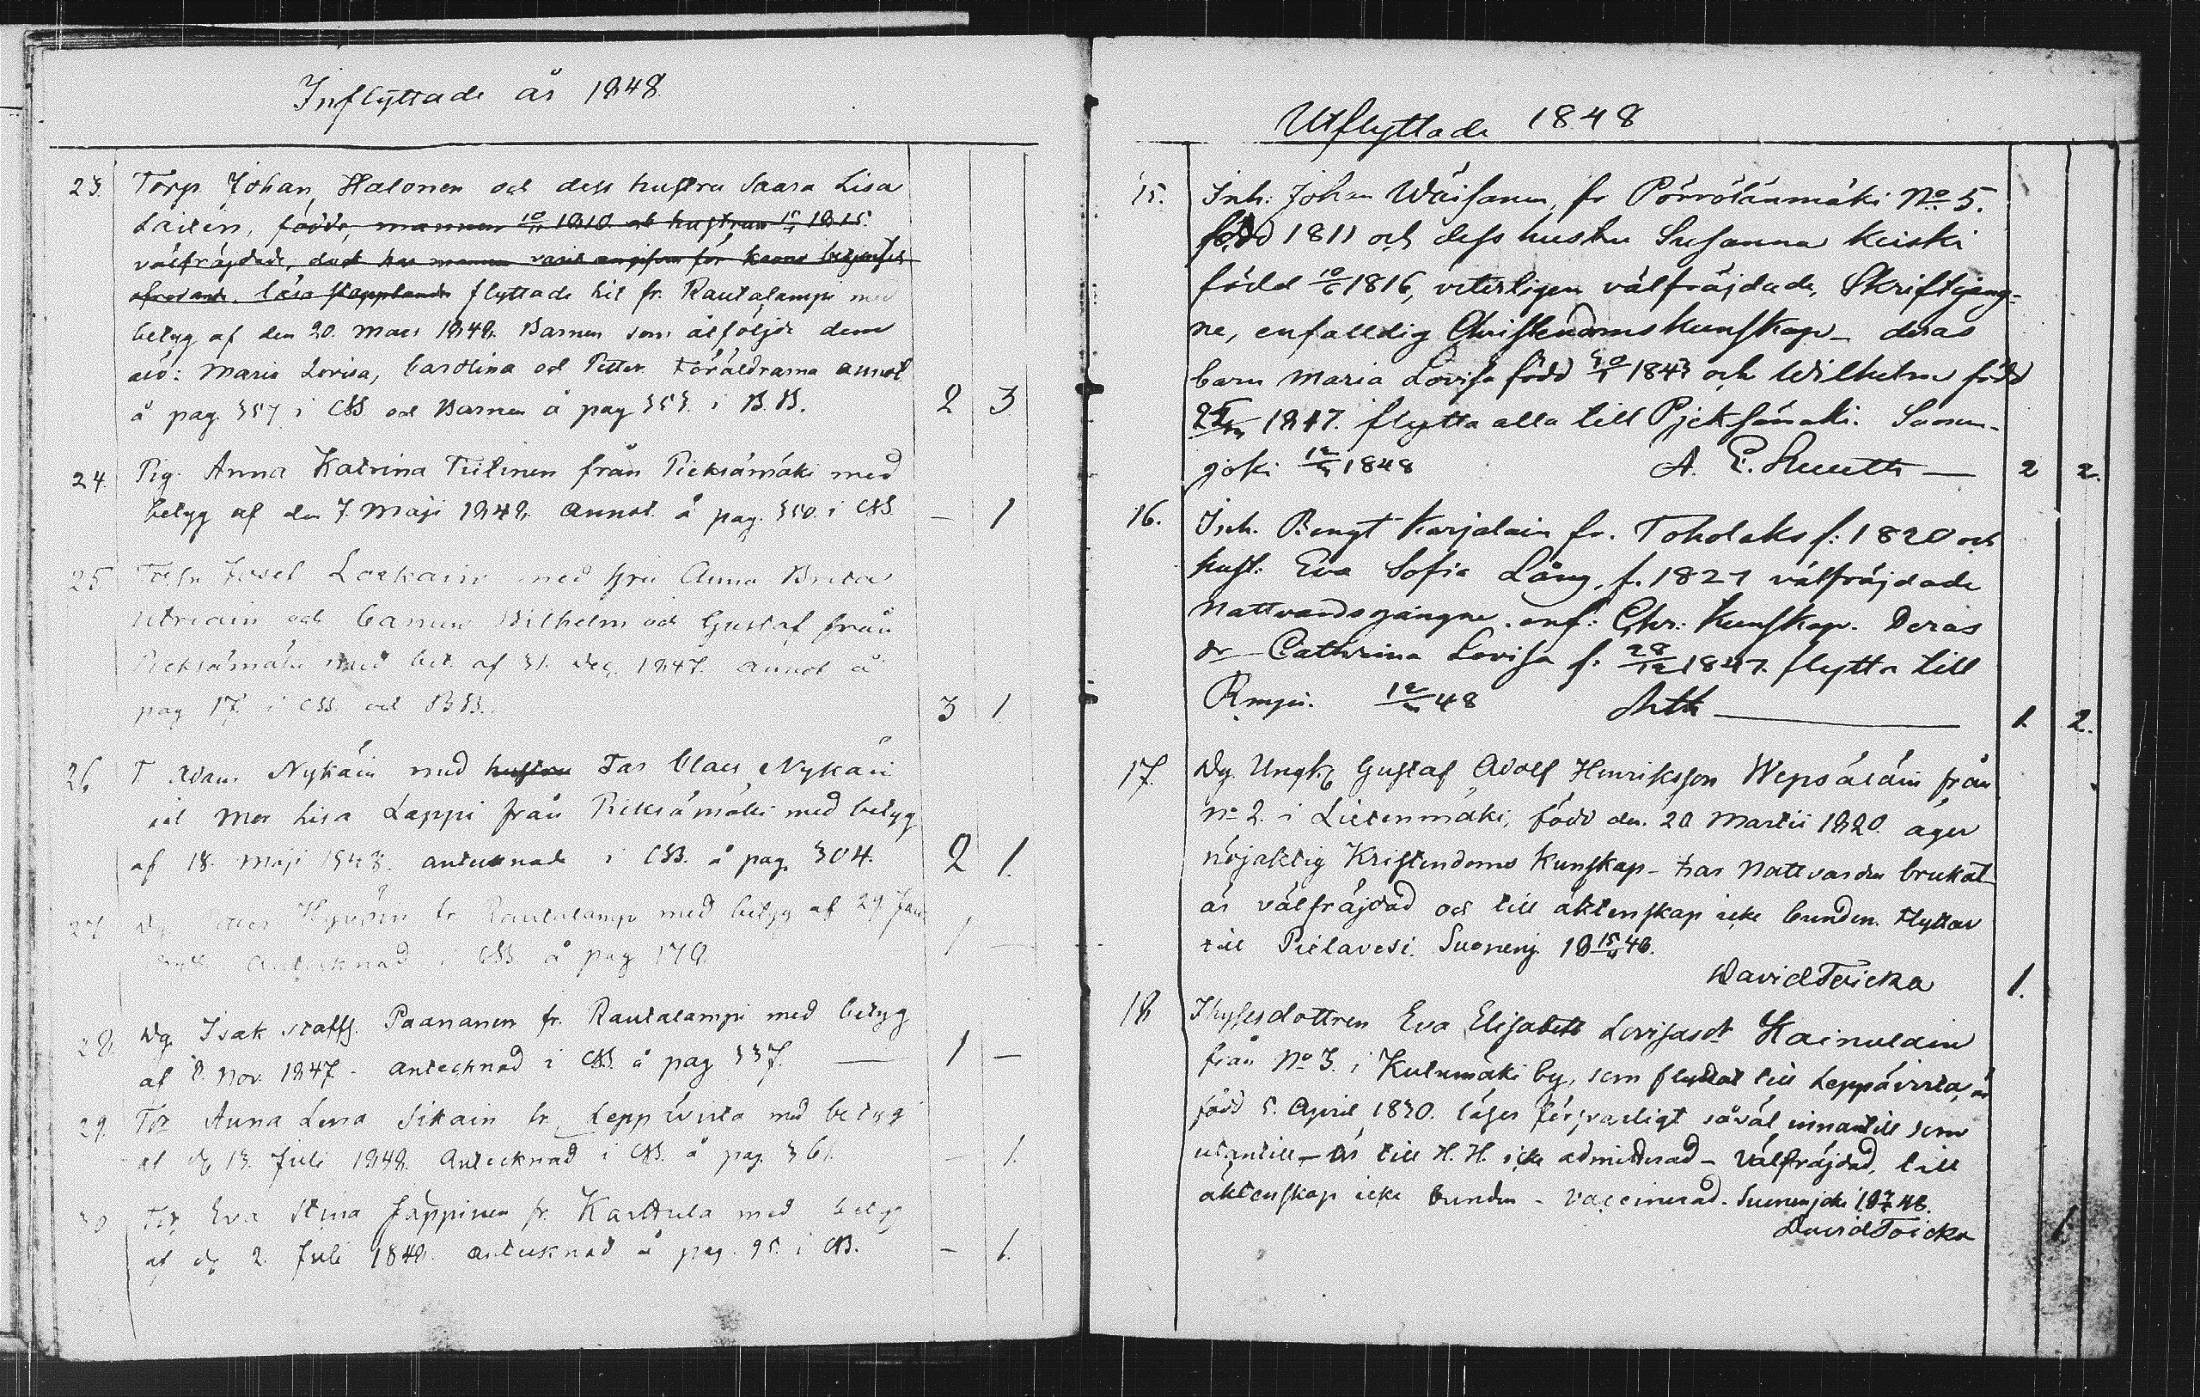 Inflyttade år 1848
23. Torp. Johan Halonen och dess hustru Saara Lisa
Laitén, födde, mannen 10/11 1810 och hustrun 15/ 1815.
välfrägdade, dock har mannen varit för
läsa flyttade hit fr. Rautalampi med
betyg af den 20. Mars 1848. Barnen som åtföljde dem
äro: Maria Lovisa, Carolina och Petter. Föräldrarna annot
å pag. 357 i CB. och Barnen å pag 353. i B.B. 2 3
24. Pig. Anna Katrina Tiilinen från Pieksämäki med
betyg af den 7. Maji 1848. annot. å pag. 350. i CB. — 1
25. Josef med hru Anna Brita
och barnen Wilhelm och Gustaf från
Pieksämäki med bet. af 31. Dec. 1847. annot å
pag 17 i CB. och BB. 3 1.
26. T. Adam Nykäin med hustru Far Claes Nykäin
och Mor Lisa Lappi från Pieksämäki med betyg
af 18. Maji 1848. antecknade i CB. å pag. 304. 2 1.
27. Dg. fr. Rautalampi med betyg af 29 Jan.
Antecknad i CB å pag 178. 1 —
28. Dg. Isak Staffs. Paananen fr. Rautalampi med betyg
af 8. Nov. 1847 - antecknad i CB. å pag 337. — 1 —
29. Anna Lena Sikain fr. Leppävirta med betyg
af d. 13. Juli 1848. Antecknad i CB. å pag. 361. — 1.
30. Eva Stina Jäppinen fr. Karttula med betyg
af d. 2. Juli 1848. antecknad å pag. 95. i CB. — 1.
Utflyttade 1848
15. Inh. Johan Wäisanen, fr Pörrölänmäki No 5.
född 1811 och dess hustru Susanna Keiski
född 10/6 1816, veterligen välfräjdade, Skriftgäng-
ne, enfalldig Christendoms kunskap – deras
barn Maria Lovisa född 30/1 1843 och Wilhelm född
1847. flytta alla till Pjeksämäki. Suonen-
joki 12/ 1848 A. E. — 2 2.
16. Inh. Bengt Karjalain fr. Toholaks f: 1820 och
hust: Eva Sofia Lång, f. 1821 välfräjdade
Nattvardsgångne. enf: Chr: Kunskap. Deras
dr Cathrina Lovisa f. 28/12 1847. flytta till
Rmpi. 12/ 48 — 1. 2.
17. Dg. Ungk. Gustaf Adolf Henriksson Wepsäläin från
No 2. i Lietenmäki, född den. 20 Martii 1820. äger
nöjaktig Kristendoms Kunskap – har Nattvarden brukat
är välfräjdad och till äktenskap icke bunden. flyttar
till Pielavesi. Suonenj. 18 15/ 48.
David Toicka 1.
18. Eva Elisabeth Lovisasdr Hainulain
från No 3. i Kutumäki by, som flyttat till Leppävirta, är
född 5. April 1830. läser försvarligt såväl innantill som
utantill – är till H. H. icke admitterad – Välfräjdad, till
äktenskap icke bunden – vaccinerad. Suonenjoki 18 48.
David Toicka 1.